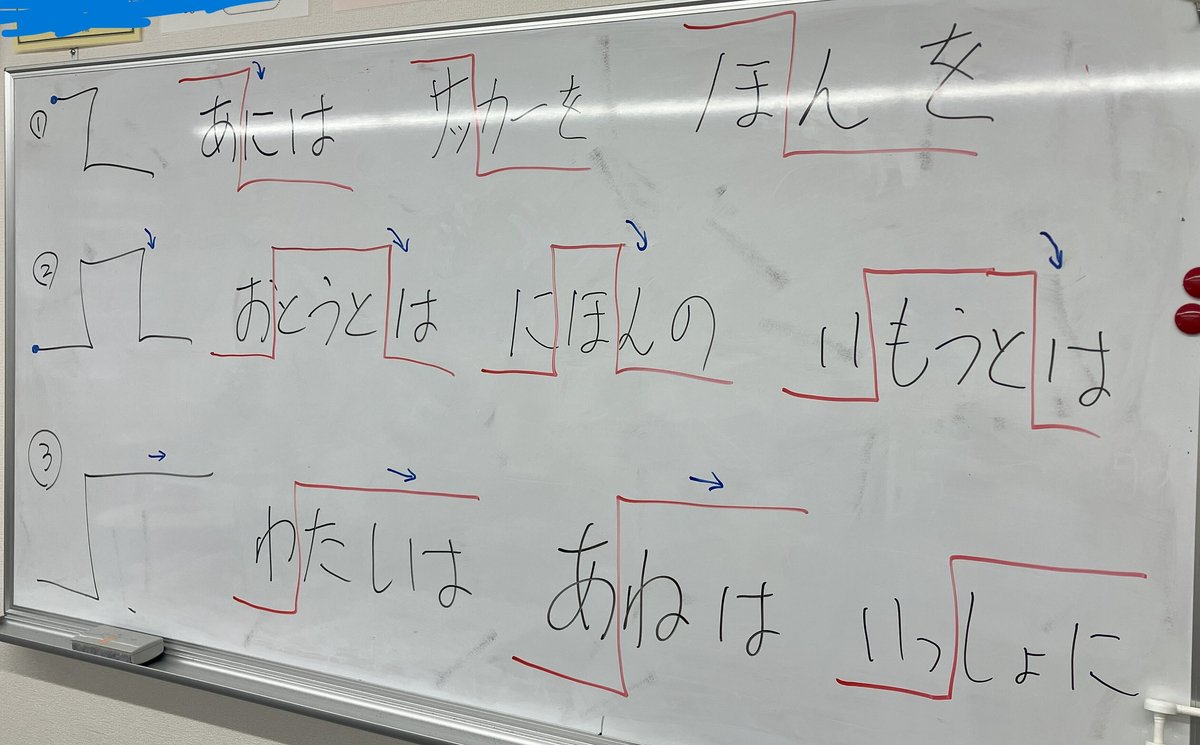 ① あには サッカーを ほんを
② おとうとは にほんの いもうとは
③ わたしは あねは いっしょに